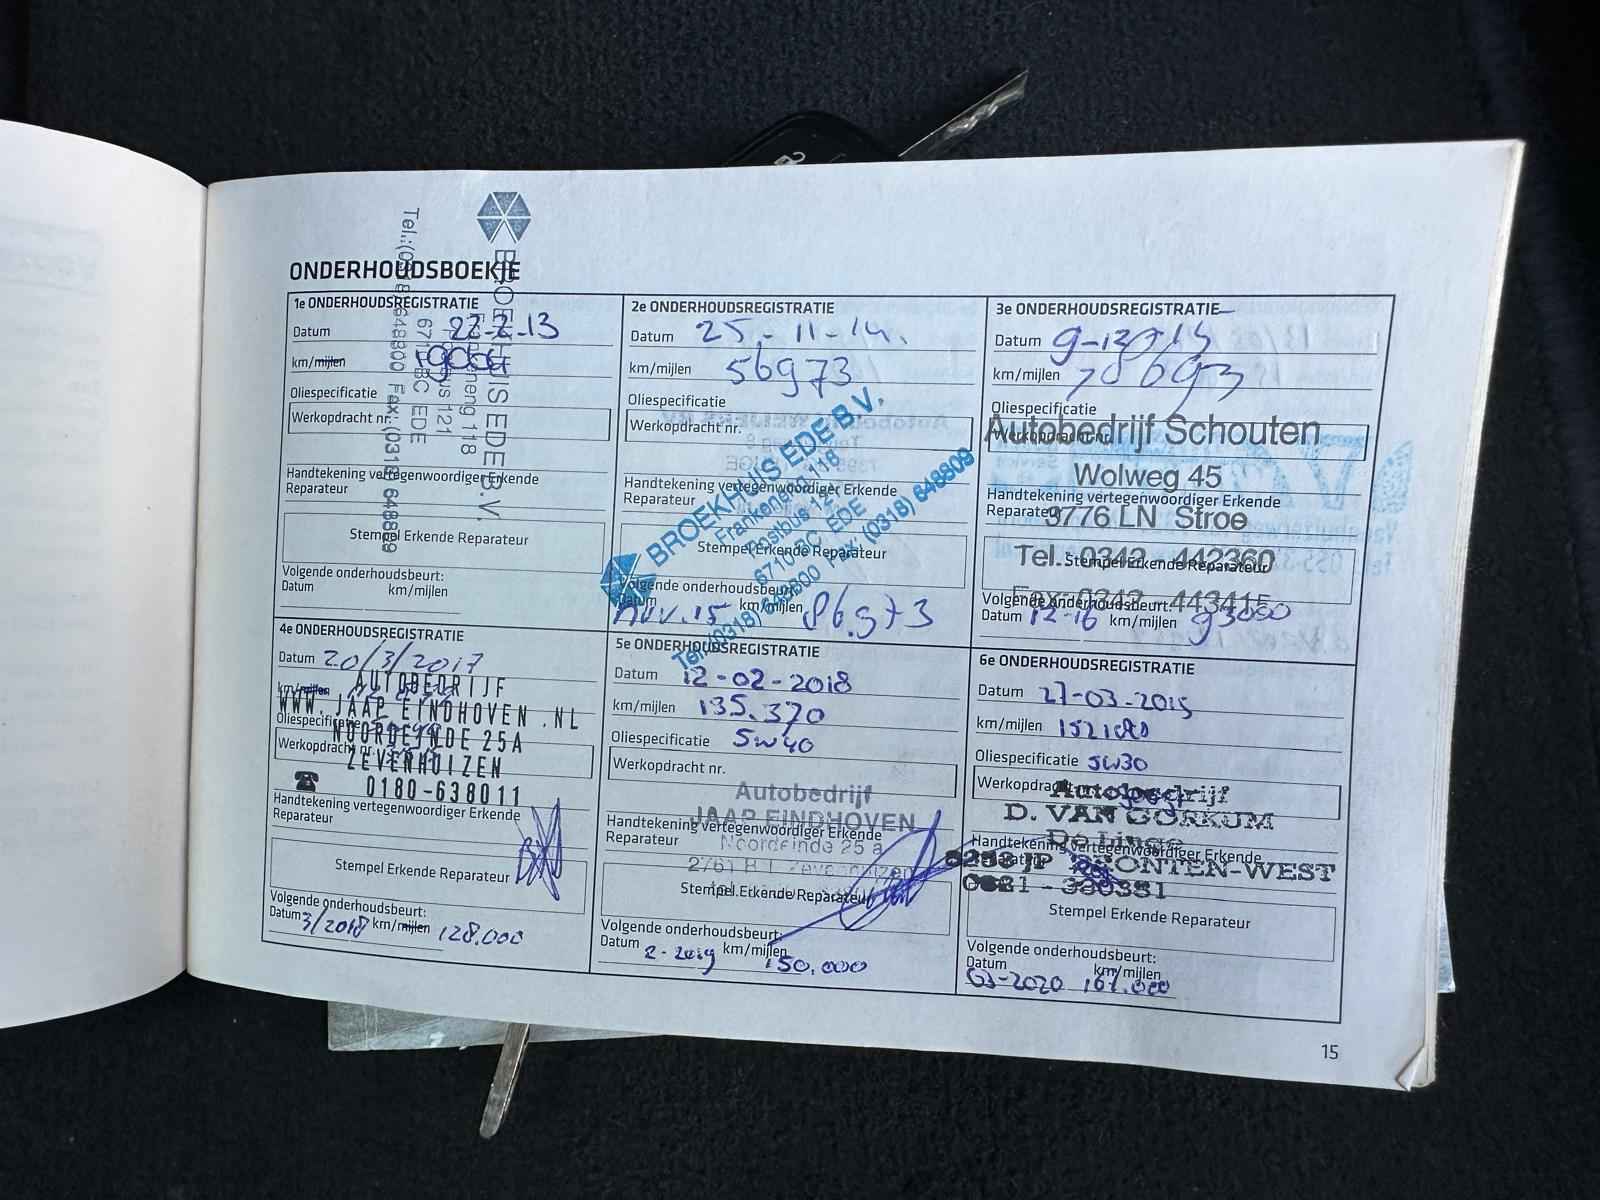 ONDERHOUDSBOEKJE
1e ONDERHOUDSREGISTRATIE
Datum 22-2-13
km/mijlen
Oliespecificatie
Werkopdracht nr.
Handtekening vertegenwoordiger Erkende
Reparateur
Stempel Erkende Reparateur
Volgende onderhoudsbeurt:
Datum km/mijlen
BROEKHUIS EDE B.V.
Frankeneng 118
Postbus 121
6710 BC EDE
Tel.:(0318) 648800 Fax: (0318) 648809
2e ONDERHOUDSREGISTRATIE
Datum 25-11-14.
km/mijlen 56973
Oliespecificatie
Werkopdracht nr.
Handtekening vertegenwoordiger Erkende
Reparateur
Stempel Erkende Reparateur
Volgende onderhoudsbeurt:
Datum nov.15 km/mijlen 86.973
BROEKHUIS EDE B.V.
Frankeneng 118
Postbus 121
6710 BC EDE
Tel.:(0318) 648800 Fax: (0318) 648809
3e ONDERHOUDSREGISTRATIE
Datum
km/mijlen 78693
Oliespecificatie
Werkopdracht nr.
Autobedrijf Schouten
Wolweg 45
Handtekening vertegenwoordiger Erkende
Reparateur
3776 LN Stroe
Tel. 0342 - 442360
Stempel Erkende Reparateur
Fax: 0342 - 443415
Volgende onderhoudsbeurt:
Datum 12-16 km/mijlen 93000
4e ONDERHOUDSREGISTRATIE
Datum 20/3/2017
km/mijlen
Oliespecificatie
Werkopdracht nr.
AUTOBEDRIJF
WWW.JAAP EINDHOVEN.NL
NOORDEINDE 25A
ZEVENHUIZEN
☎ 0180-638011
Handtekening vertegenwoordiger Erkende
Reparateur
Stempel Erkende Reparateur
Volgende onderhoudsbeurt:
Datum 3/2018 km/mijlen 128.000
5e ONDERHOUDSREGISTRATIE
Datum 12-02-2018
km/mijlen 135.370
Oliespecificatie 5w40
Werkopdracht nr.
Autobedrijf
JAAP EINDHOVEN
Handtekening vertegenwoordiger Erkende
Reparateur
Noordeinde 25 a
2761 Zevenhuizen
Stempel Erkende Reparateur
Volgende onderhoudsbeurt:
Datum 2-2019 km/mijlen 150.000
6e ONDERHOUDSREGISTRATIE
Datum
km/mijlen
Oliespecificatie 5W30
Werkopdracht nr.
Autobedrijf
D. VAN GORKUM
De Linge
Handtekening vertegenwoordiger Erkende
DRONTEN-WEST
Stempel Erkende Reparateur
Volgende onderhoudsbeurt:
Datum km/mijlen
03-2020 167.000
15